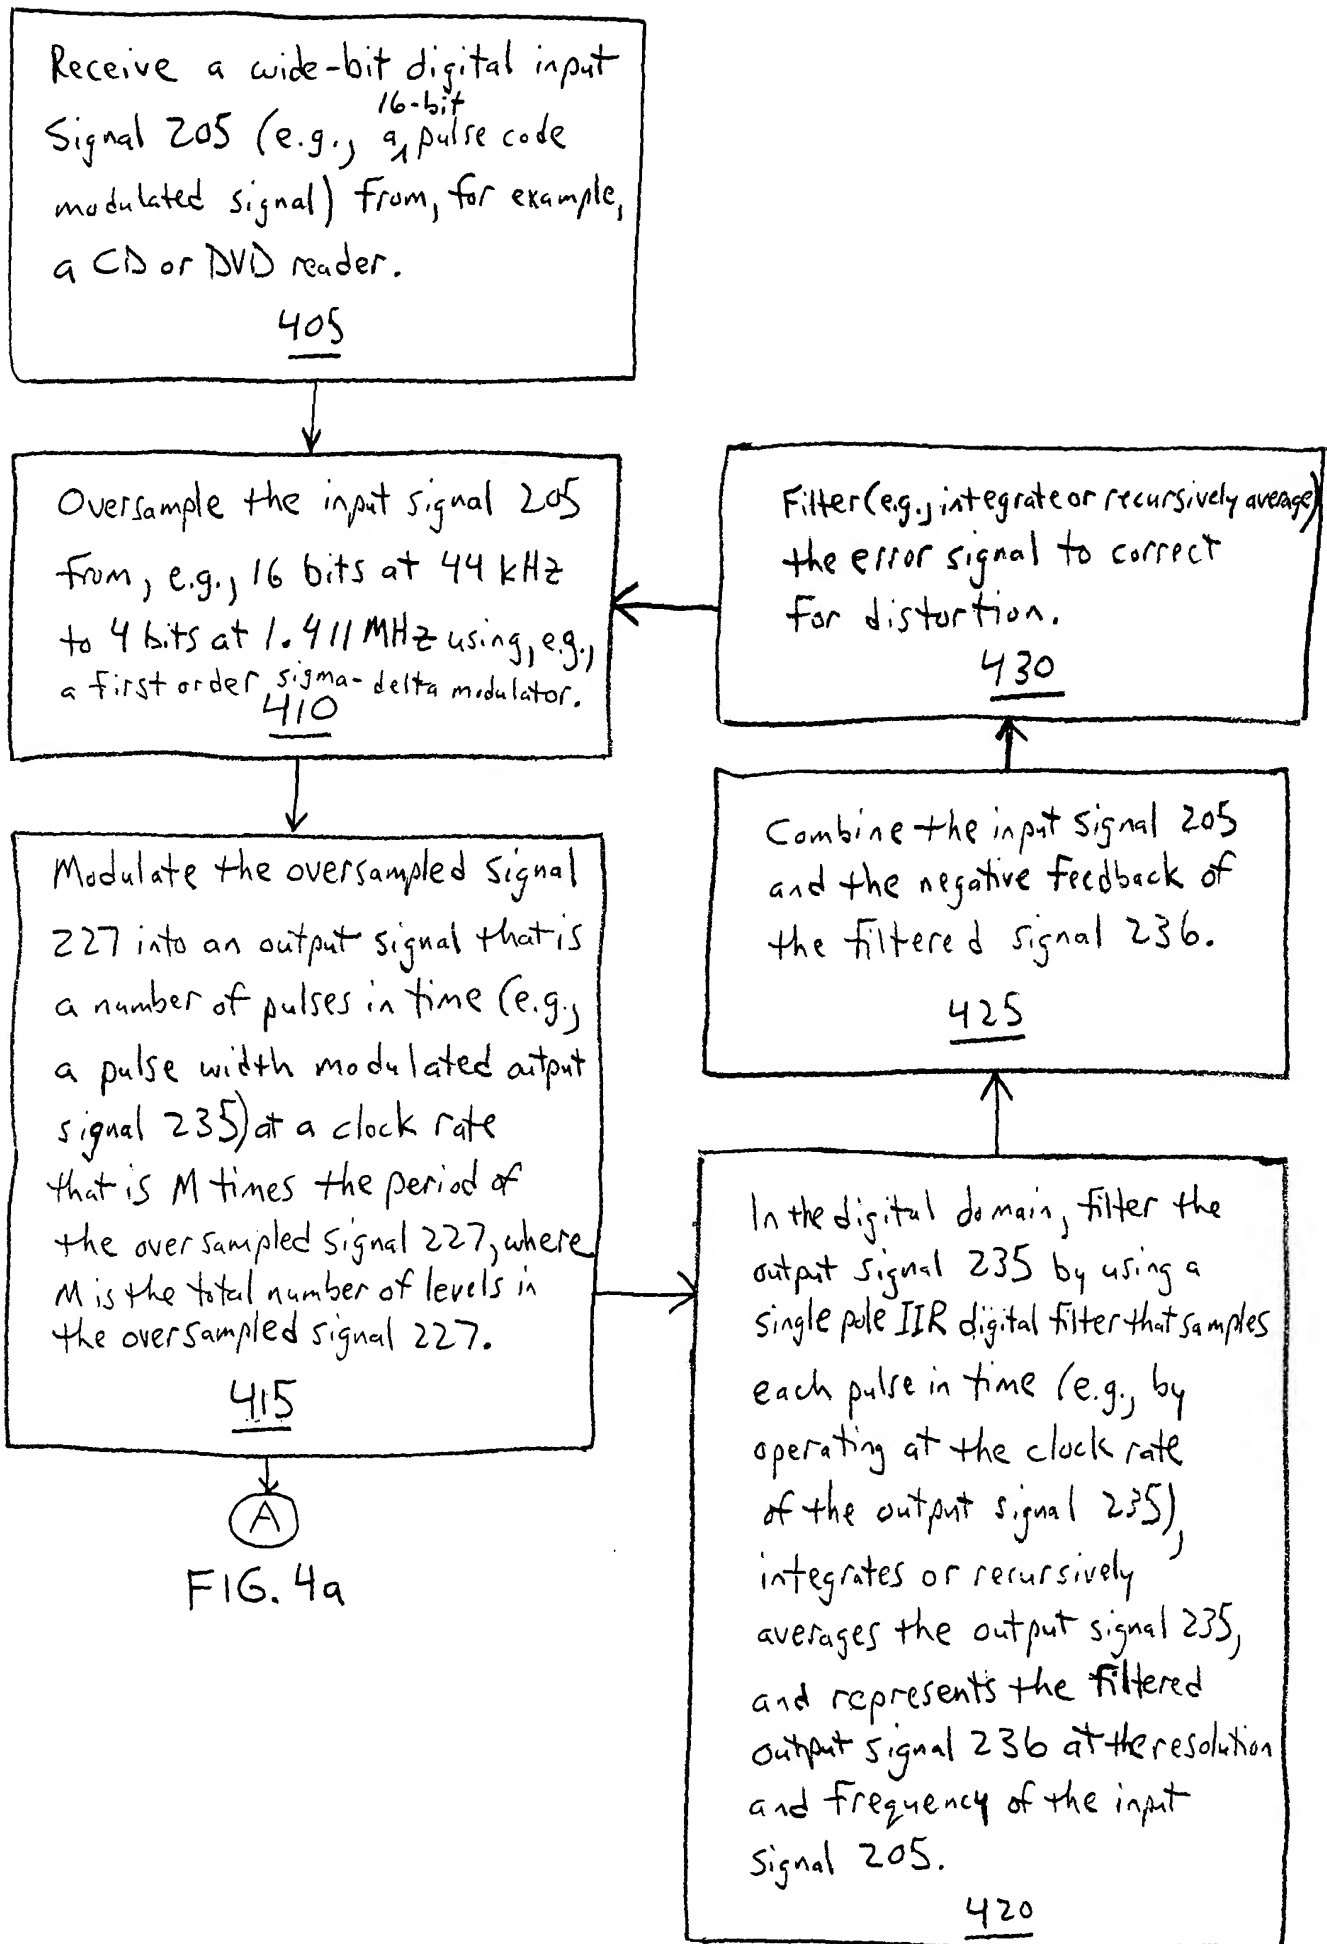 Receive a wide-bit digital input
16-bit
Signal 205 (e.g., a pulse code
modulated signal) from, for example,
a CD or DVD reader.
405
Oversample the input signal 205
from, e.g., 16 bits at 44 kHz
to 4 bits at 1.411 MHz using, e.g.,
a first order sigma-delta modulator.
410
Modulate the oversampled signal
227 into an output signal that is
a number of pulses in time (e.g.,
a pulse width modulated output
signal 235) at a clock rate
that is M times the period of
the oversampled signal 227, where
M is the total number of levels in
the oversampled signal 227.
415
A
FIG. 4a
Filter (e.g., integrate or recursively average)
the error signal to correct
for distortion.
430
Combine the input signal 205
and the negative feedback of
the filtered signal 236.
425
In the digital domain, filter the
output signal 235 by using a
single pole IIR digital filter that samples
each pulse in time (e.g., by
operating at the clock rate
of the output signal 235),
integrates or recursively
averages the output signal 235,
and represents the filtered
output signal 236 at the resolution
and frequency of the input
signal 205.
420